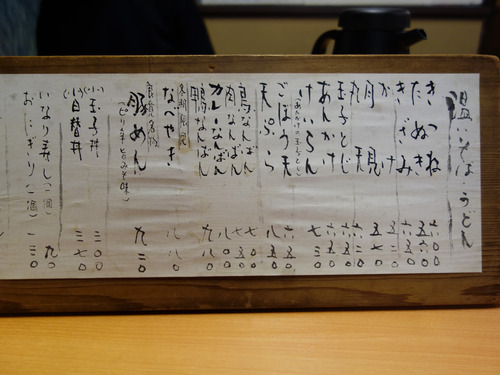 温いそば・うどん
きつね 六〇〇
たぬき
きざみ
かけ
月見 五七〇
丸天
玉子とじ
あんかけ
けいらん 七三〇
(あんかけの玉子とじ)
ごぼう天 六五〇
天ぷら 八五〇
鳥なんばん 七〇〇
肉なんばん 七五〇
カレーなんばん 八〇〇
鴨なんばん 九八〇
冬期限定
なべやき 八八〇
名物
豚めん 九三〇
(ピリ辛とろみそ味)
小玉子丼 三〇〇
小日替丼 三七〇
いなり寿し(一個) 九〇
おにぎり(一個) 一三〇